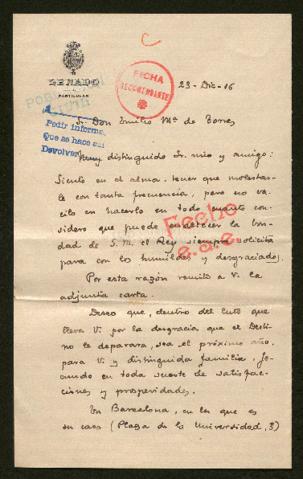 C
SENADO
PARTICULAR
FECHA
23-Dic-16
Sr. Don Emilio Mª de Torres
Pedir informe,
Que se hace así
Devolver
Muy distinguido Sr. mio y amigo:
Siento en el alma tener que molestar-
le con tanta frecuencia, pero no va-
cilo en hacerlo en todo cuanto con-
sidero que puede enaltecer la bon-
dad de S. M. el Rey siempre solicita
para con los humildes y desgraciados.
Fecho
Por esta razón remito a V. la
adjunta carta.
Deseo que, dentro del luto que
lleva V. por la desgracia que el Desti-
no le deparara, sea el próximo año,
para V. y distinguida familia, fe-
cundo en toda suerte de satisfac-
ciones y prosperidades.
En Barcelona, en la que es
su casa (Plaza de la Universidad, 3)